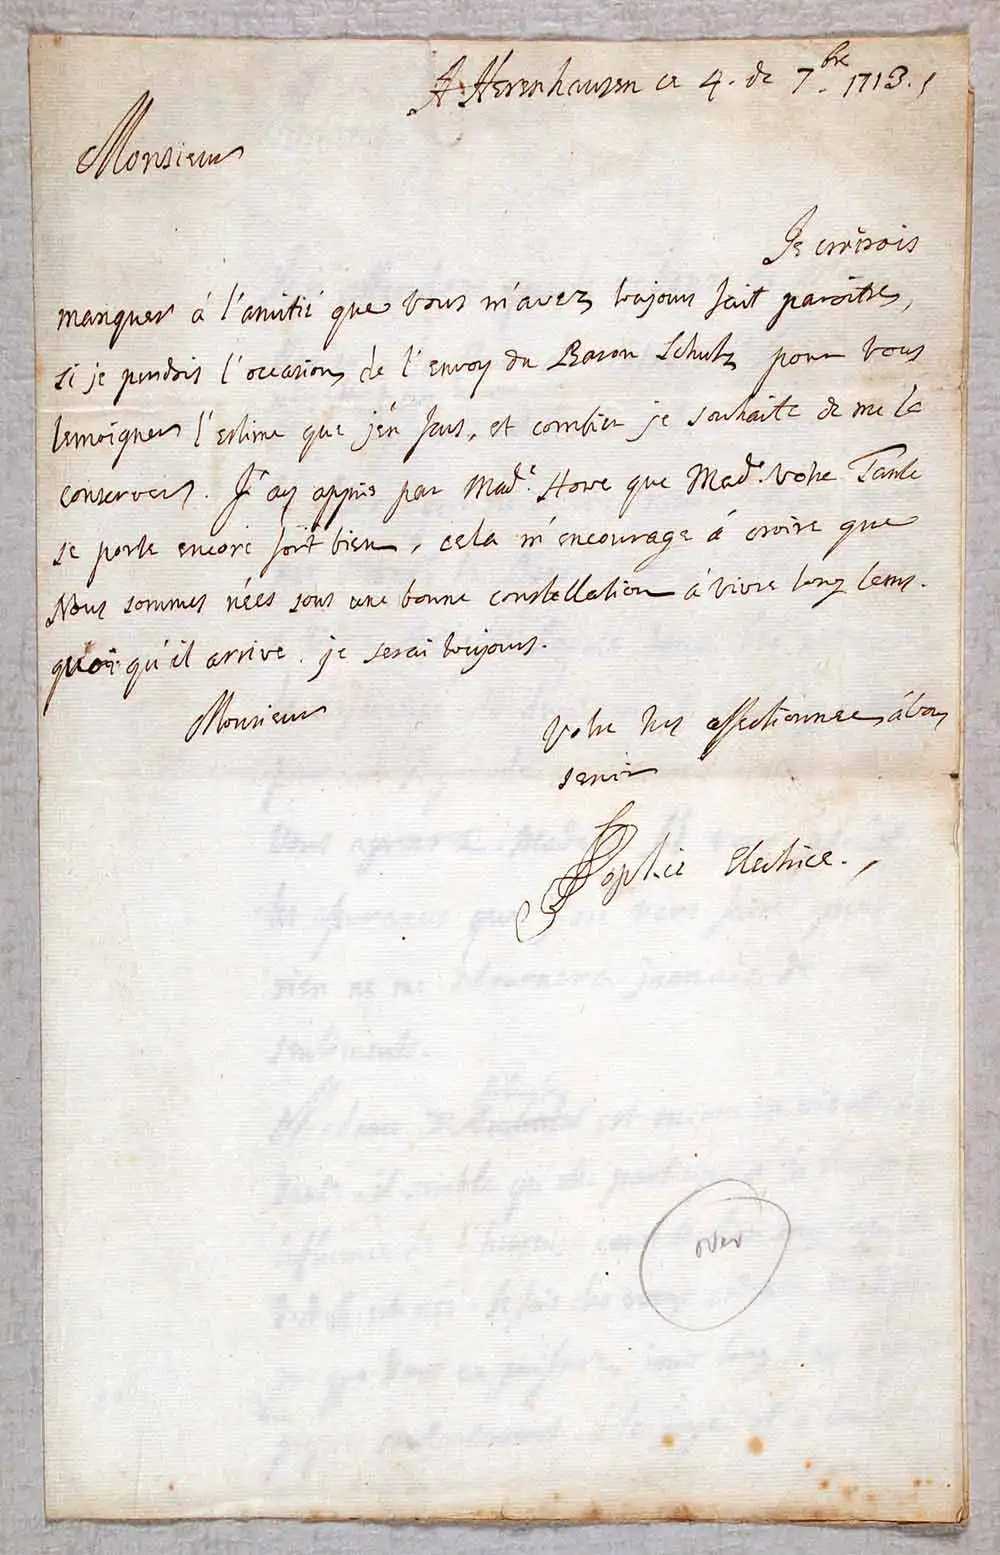 A Herenhausen ce 4. de 7.bre 1713.
Monsieur
Je croirois
manquer á l'amitié que vous m'avez toujours fait paroitre,
si je perdois l'occasion de l'envoy du Baron Schutz pour vous
temoigner l'estime que j'en fais, et combien je souhaite de me la
conserver. J'ay appris par Mad.e Howe que Mad.e votre Tante
se porte encore fort bien, cela m'encourage á croire que
Nous sommes nées sous une bonne constellation á vivre long tems.
quoi qu'il arrive je serai toujours.
Monsieur
Votre tres affectionnee á vous
servir
Sophie Electrice.
over